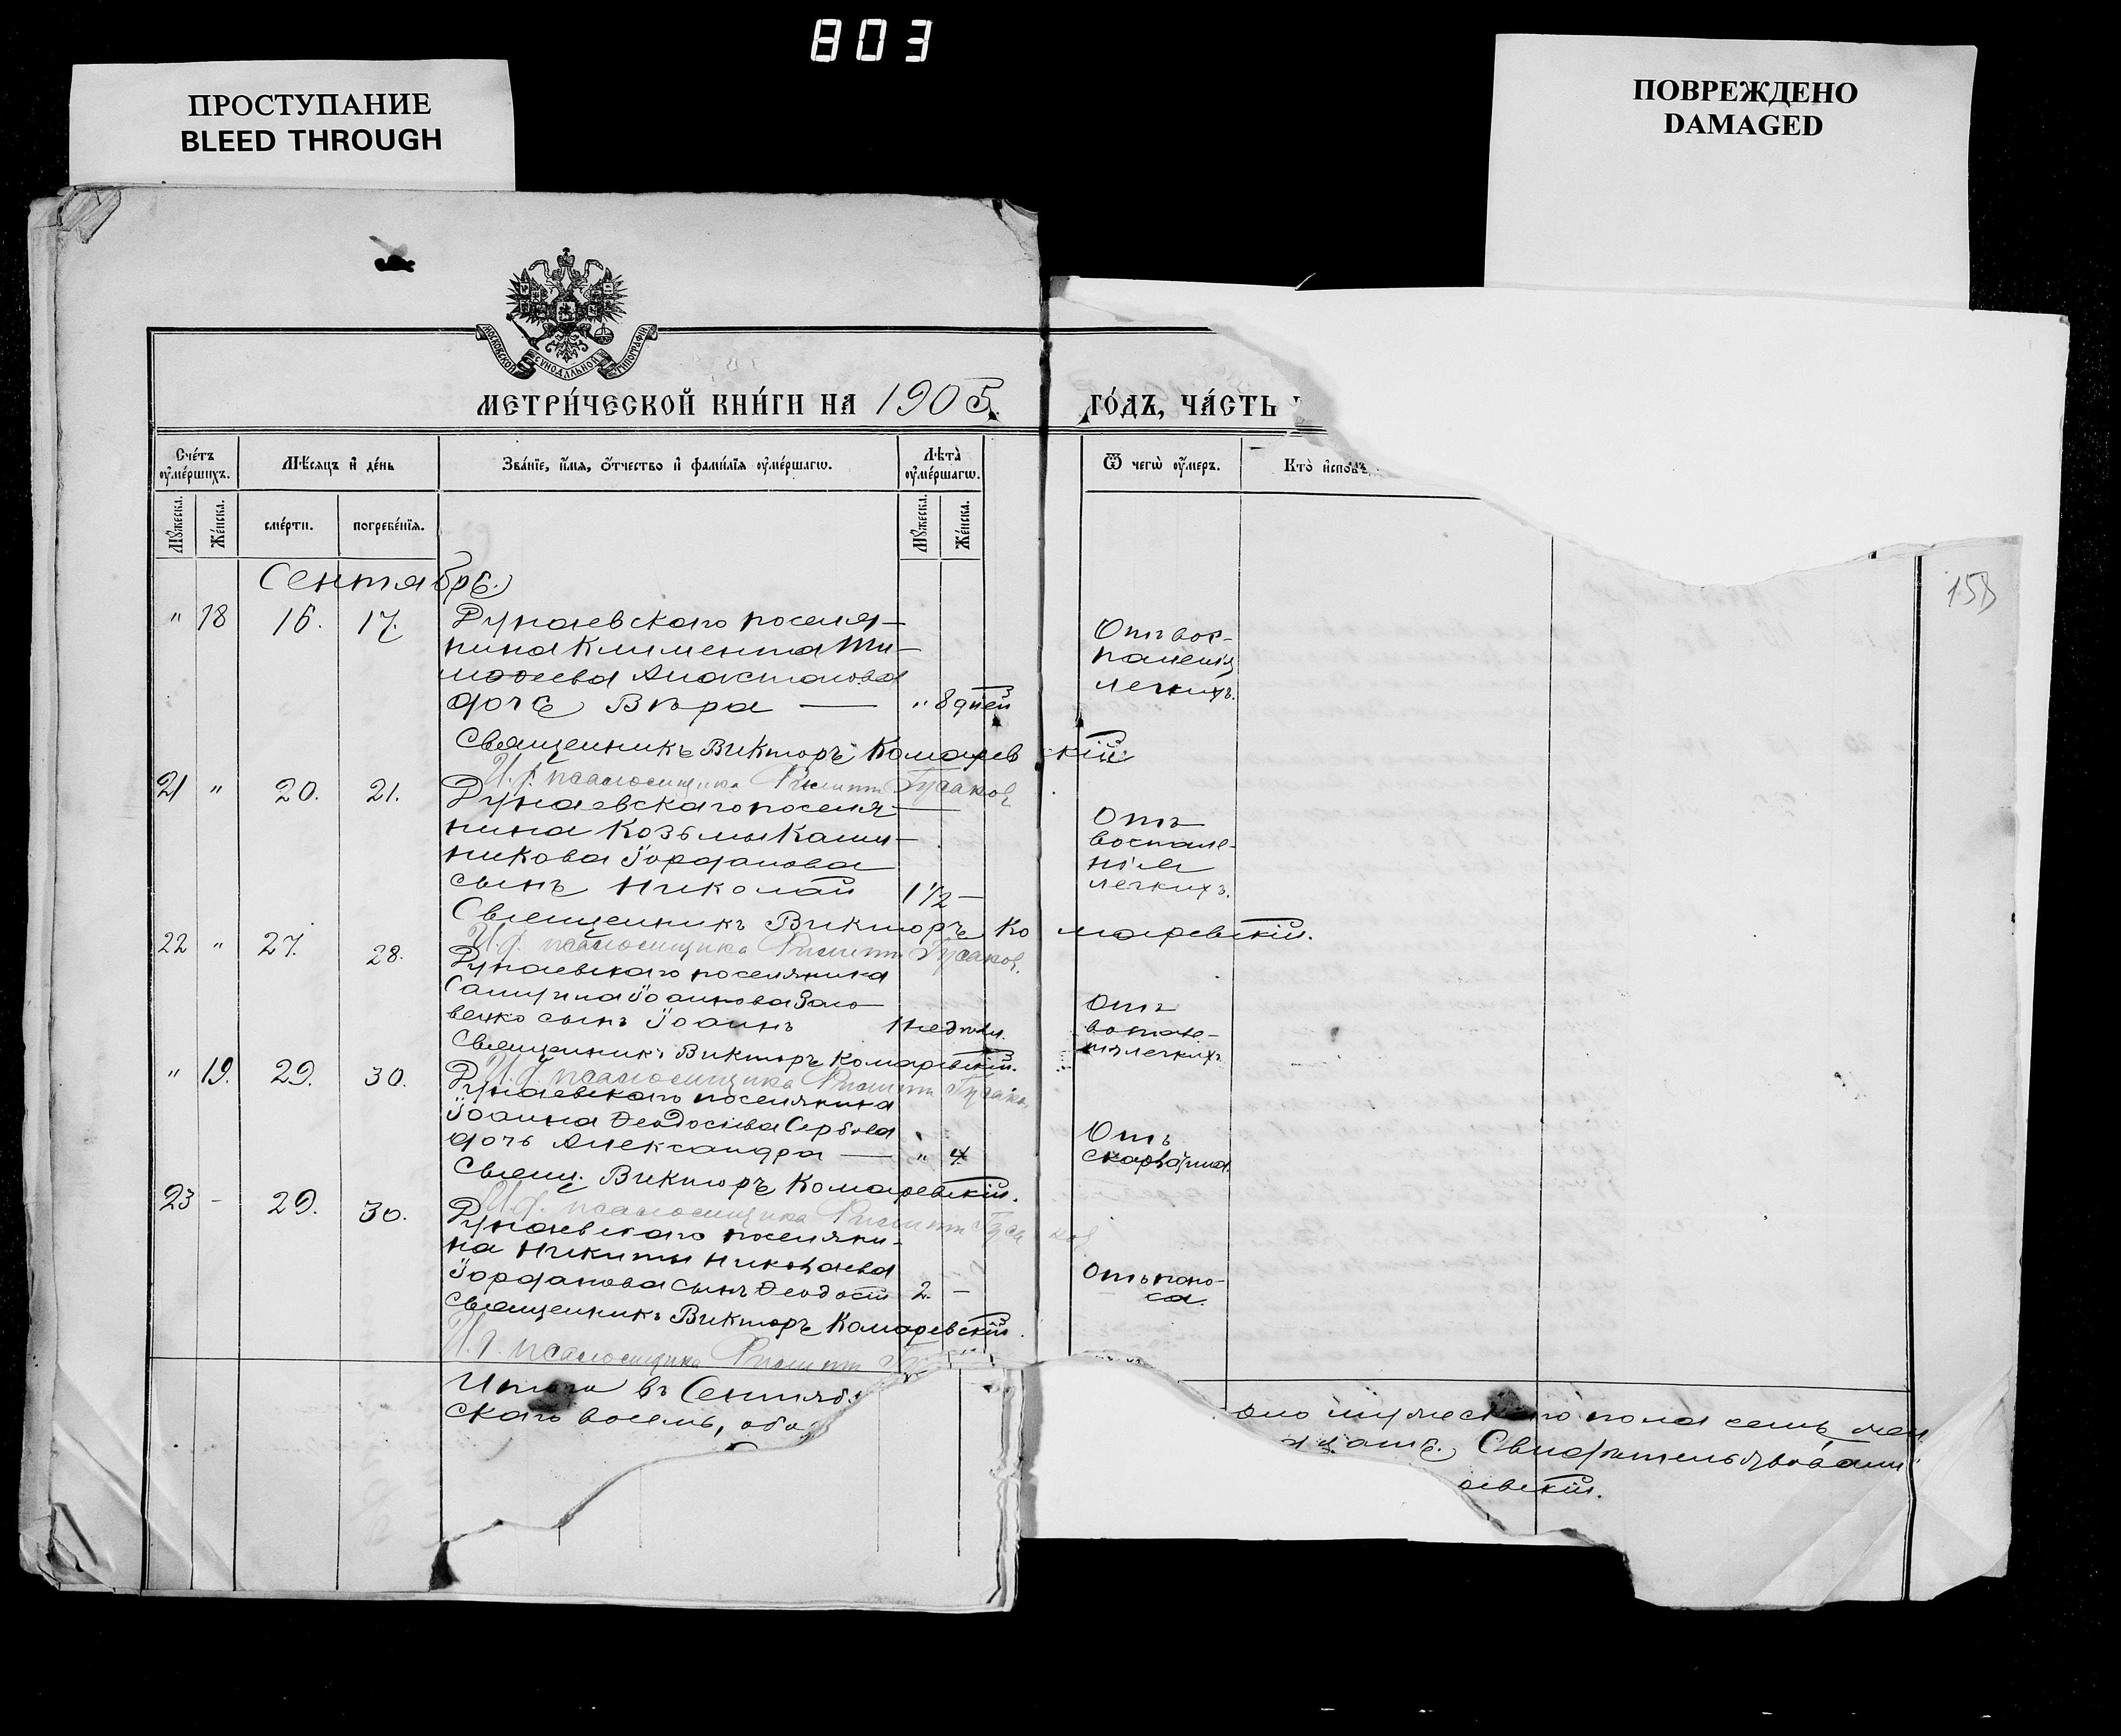 803
ПРОСТУПАНИЕ
BLEED THROUGH
ПОВРЕЖДЕНО
DAMAGED
МОСКОВСКОЙ СѴНОДАЛЬНОЙ ТИПОГРАФІИ
МЕТРИ́ЧЕСКОЙ КНИ́ГИ НА 1905 ГО́ДЪ, ЧА́СТЬ
Сче́тъ ᲂу҆ме́ршихъ. Мѣ́сѧцъ и҆ де́нь Зва́нїе, и҆́мѧ, ѻ҆́тчество и҆ фами́лїѧ ᲂу҆ме́ршагѡ. Лѣ́та ᲂу҆ме́ршагѡ. Ѿ чегѡ̀ ᲂу҆́меръ. Кто̀ и҆сповѣ
Мꙋ́жеска. Же́нска. сме́рти. погребе́нїѧ. Мꙋ́жеска. Же́нска.
Сентябрь.
158
" 18 16. 17. Дунаевскаго поселя-
нина Климента Ти-
моѳеева Апостолова
дочь Вѣра — " 8 дней
Отъ вос-
паленія
легкихъ.
Священникъ Викторъ Комаревскій
И.ф. псаломщика Филиппъ Гусаковъ
21 " 20. 21. Дунаевскаго поселя-
нина Козьмы Калин-
никова Іорданова
сынъ Николай 1 1/2 —
Отъ
воспале-
нія
легкихъ.
Священникъ Викторъ Комаревскій.
И.ф. псаломщика Филиппъ Гусаковъ.
22 " 27. 28. Дунаевскаго поселянина
Іоаннова
сынъ Іоаннъ 1 недѣли.
Отъ
воспале-
нія легкихъ.
Священникъ Викторъ Комаревскій.
И.ф. псаломщика Филиппъ Гусаков
" 19. 29. 30. Дунаевскаго поселянина
Іоанна Ѳеодосіева Сербова
дочь Александра — " 4.
Отъ
скарлатина.
Свящ. Викторъ Комаревскій.
И.ф. псаломщика Филиппъ Гусаков
23 - 29. 30. Дунаевскаго поселяни-
на Никиты Николаева
Іорданова сынъ Ѳеодосій 2. —
Отъ поно-
са.
Священникъ Викторъ Комаревскій.
И.ф. псаломщика Филиппъ
Итого въ Сентяб мужескаго пола семь, жен
скаго восемь, обо
Свидѣтельствовали
евскій.